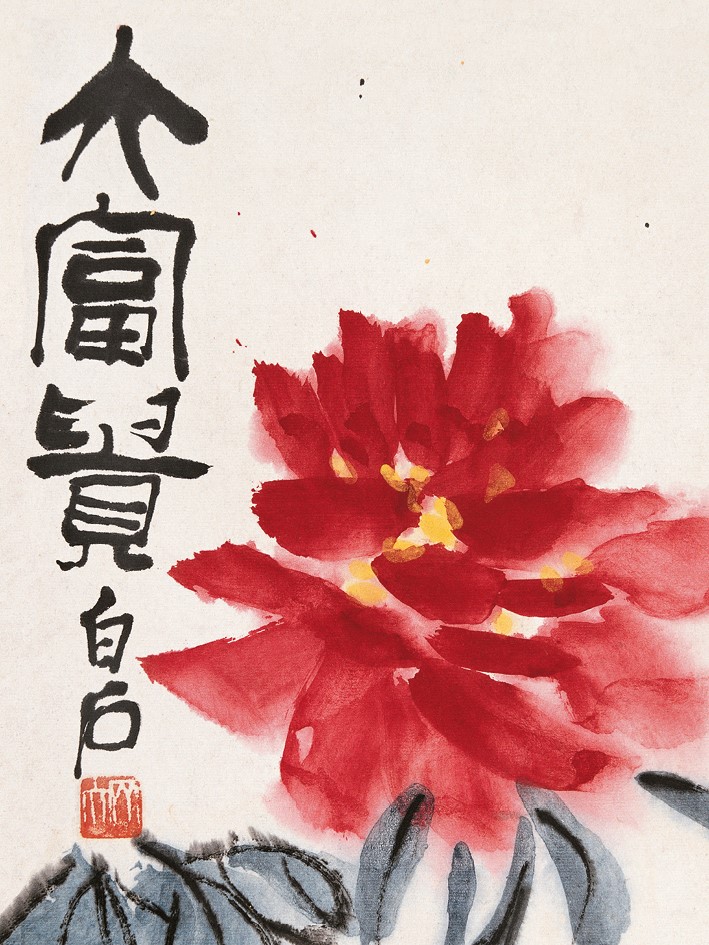 大富貴 白石